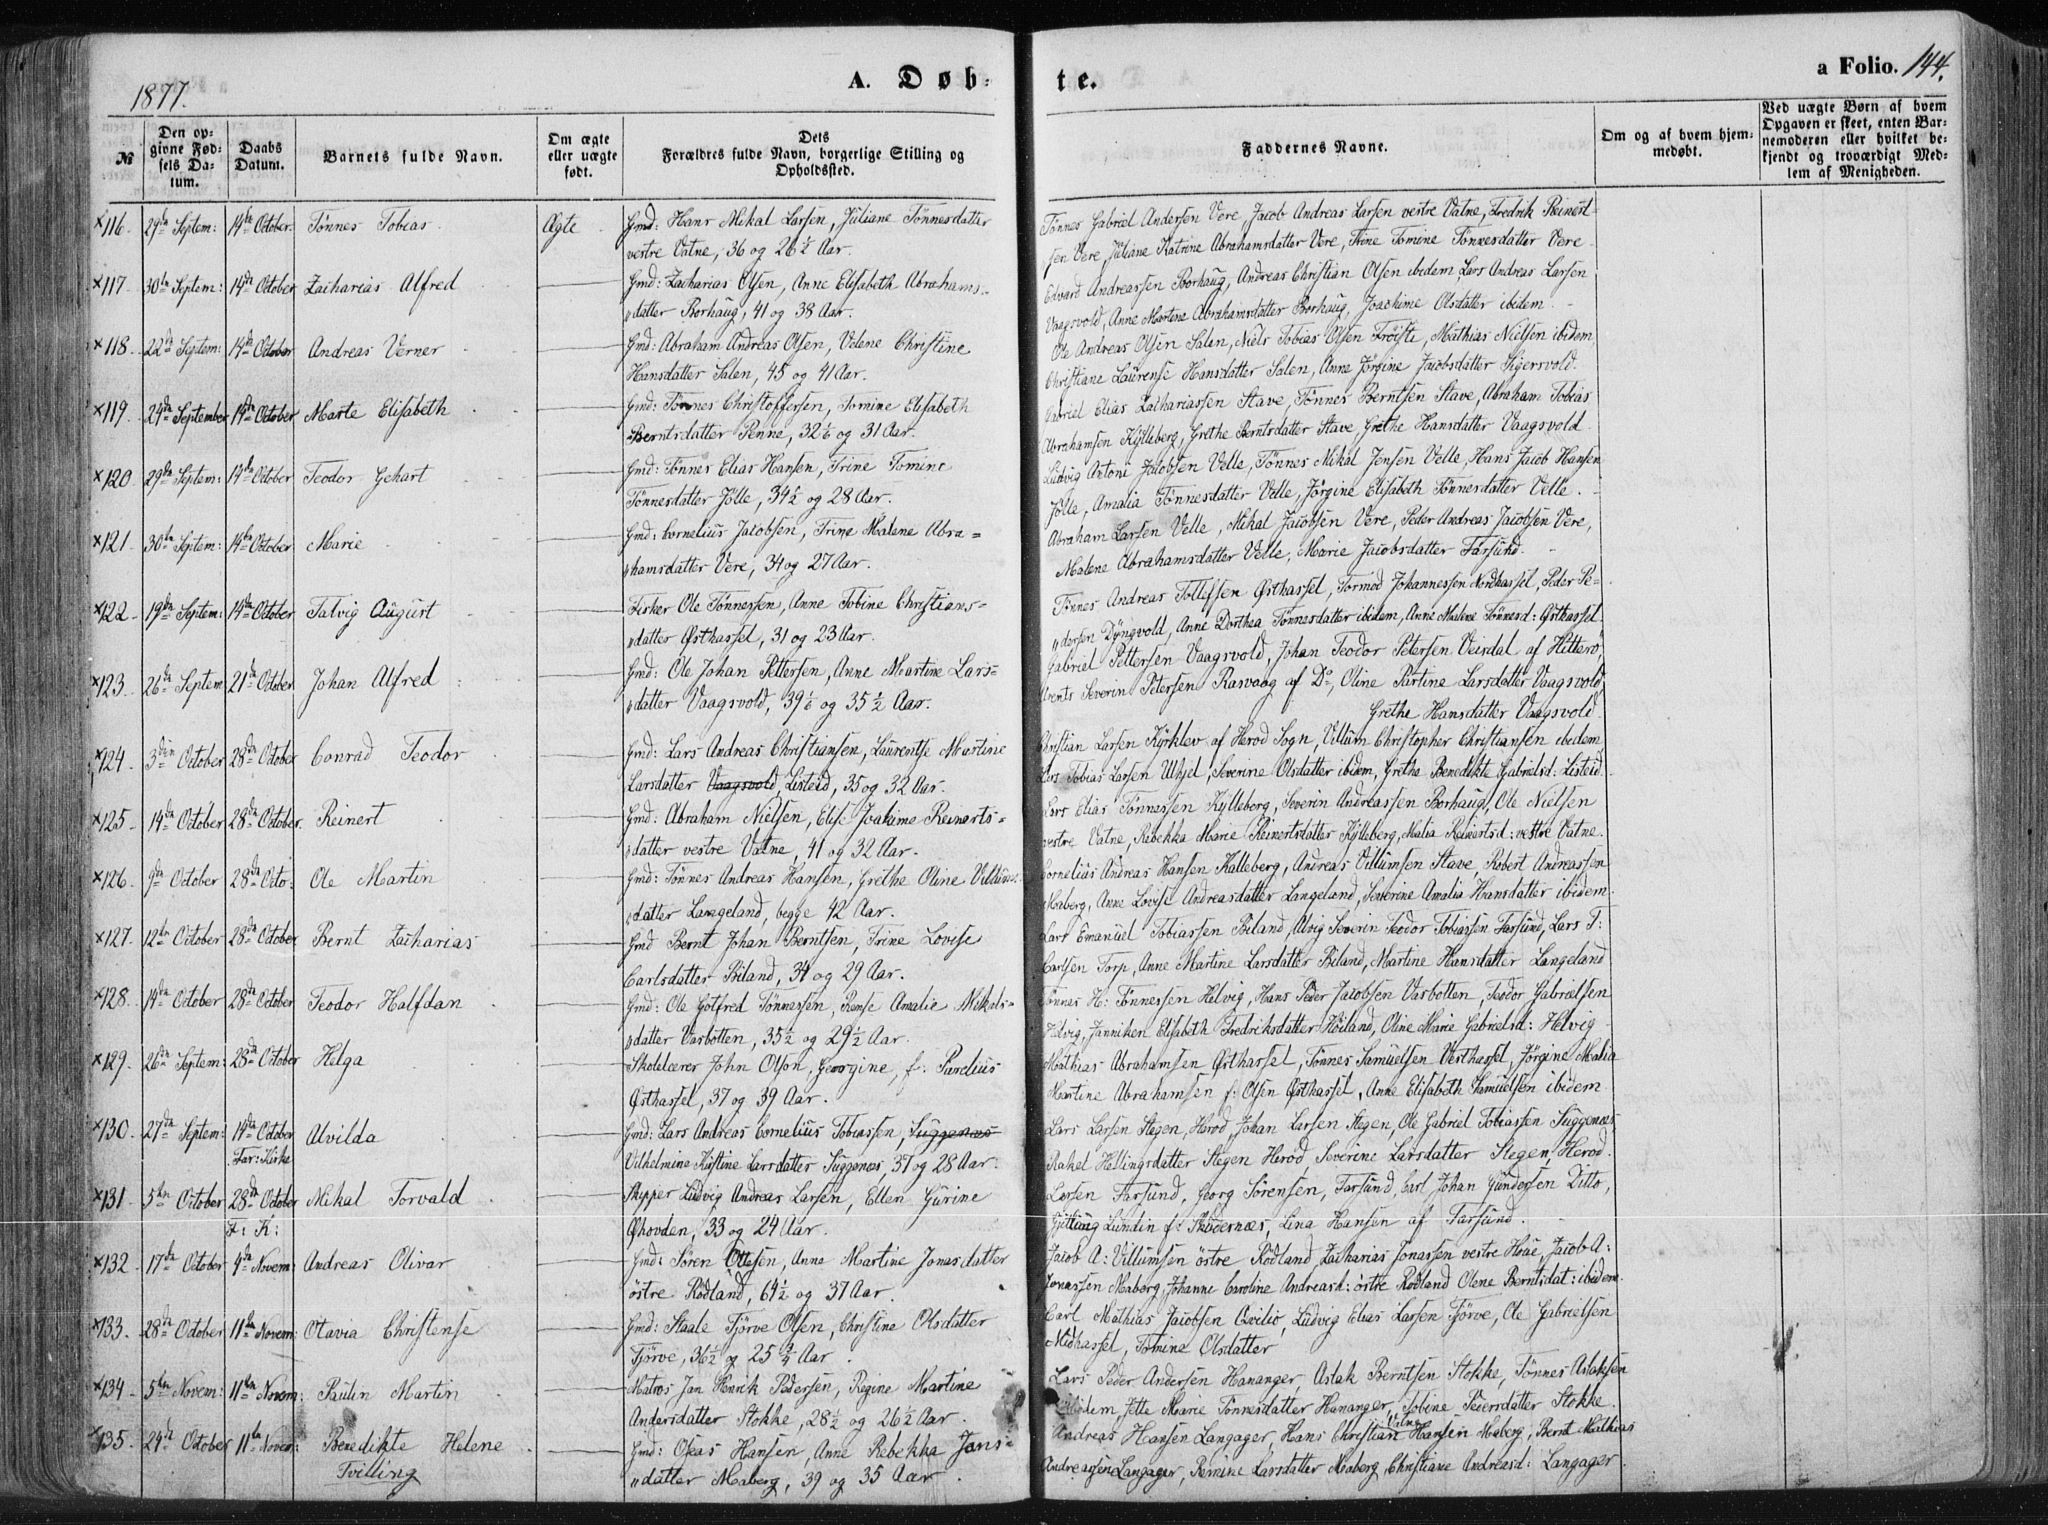 1877.
A. Døb-
te.
a Folio. 144.
№
Den op-
givne Fød-
sels Da-
tum.
Daabs
Datum.
Barnets fulde Navn.
Om ægte
eller uægte
født.
Dets
Forældres fulde Navn, borgerlige Stilling og
Opholdssted.
Faddernes Navne.
Om og af hvem hjem-
medøbt.
Ved uægte Børn af hvem
Opgaven er skeet, enten Bar-
nemoderen eller hvilket be-
kjendt og troværdigt Med-
lem af Menigheden.
×116. 29de Septem: 14de October. Tønnes Tobias. Ægte Gmd: Hans Mikal Larsen, Juliane Tønnesdatter
vestre Vatne, 36 og 26½ Aar.
Tønnes Gabriel Andersen Vere, Jacob Andreas Larsen vestre Vatne, Fredrik Reinert-
sen Vere, Juliane Katrine Abrahamsdatter Vere, Trine Tomine Tönnesdatter Vere.
×117. 30te Septem: 14de October Zacharias Alfred Gmd: Zacharias Olsen, Anne Elisabeth Abrahams-
datter Borhaug, 41 og 38 Aar.
Edvard Andreassen Borhaug, Andreas Christian Olsen ibidem, Lars Andreas Larsen
Vaagsvold, Anne Martene Abrahamsdatter Borhaug, Joachime Olsdatter ibidem.
×118. 22de Septem: 14de October Andreas Verner Gmd: Abraham Andreas Olsen, Velene Christine
Hansdatter Salen, 45 og 41 Aar.
Ole Andreas Olsen Salen, Niels Tobias Olsen Frøiste, Mathias Nielsen ibidem
Christiane Laurense Hansdatter Salen, Anne Jörgine Jacobsdatter Sigersvold.
×119. 24de September 14de October Marte Elisabeth Gmd: Tønnes Christoffersen, Tomine Elisabeth
Berntsdatter Penne, 32 og 31 Aar.
Gabriel Elias Zachariassen Stave, Tönnes Berntsen Stave, Abraham Tobias
Abrahamsen Kjylleberg, Grethe Berntsdatter Stave, Grethe Hansdatter Vaagsvold.
×120 29de Septem: 14de October Teodor Gehart Gmd: Tønnes Elias Hansen, Trine Tomine
Tönnesdatter Jölle, 34½ og 28 Aar.
Ludvig Antoni Jacobsen Velle, Tønnes Mikal Jensen Velle, Hans Jacob Hansen
Jölle, Amalia Tönnesdatter Velle, Jörgine Elisabeth Tönnesdatter Velle.
×121. 30te Septem: 14de October Marie Gmd: Cornelius Jacobsen, Trine Malene Abra-
hamsdatter Vere, 34 og 27 Aar.
Abraham Larsen Velle, Mikal Jacobsen Vere, Peder Andreas Jacobsen Vere,
Malene Abrahamsdatter Velle, Marie Jacobsdatter Farsund.
×122. 19de Septem: 14de October Talvig August Fisker Ole Tönnessen, Anne Tobine Christians-
datter Østhassel, 31 og 23 Aar.
Tønnes Andreas Tollefsen Østhassel, Tormod Johannessen Nordhassel, Peder Pe-
dersen Dyngvold, Anne Dorthea Tönnesdatter ibidem, Anne Malene Tönnesd: Østhassel.
×123. 26de Septem 21de October Johan Alfred Gmd: Ole Johan Pettersen, Anne Martine Lars-
datter Vaagsvold, 39 og 35½ Aar.
Gabriel Pettersen Vaagsvold, Johan Teodor Petersen Veisdal af Hitterö,
Arents Severin Petersen Rasvaag af Do, Oline Partine Larsdatter Vaagsvold,
Grethe Hansdatter Vaagsvold.
×124. 3die October 28de October Conrad Teodor Gmd: Lars Andreas Christiansen, Laurentse Martine
Larsdatter Vaagsvold, Listeid, 35 og 32 Aar.
Christian Larsen Kjørklev af Herod Sogn, Villum Christopher Christiansen ibidem
Lars Tobias Larsen Ulhjel, Severine Olsdatter ibidem, Grethe Benedikte Gabrielsd: Listeid.
×125. 14de October 28de October. Reinert Gmd: Abraham Nielsen, Elise Joakime Reinerts-
datter vestre Vatne, 41 og 32 Aar.
Lars Elias Tönnessen Kjylleberg, Severin Andreassen Borhaug, Ole Nielsen
vestre Vatne, Rebekka Marie Reinertsdatter Kjylleberg, Malia Reinertsd: vestre Vatne.
×126. 9de October 28de Octo: Ole Martin Gmd: Tönnes Andreas Hansen, Grethe Oline Villums-
datter Langeland, begge 42 Aar.
Cornelius Andreas Hansen Kalleberg, Andreas Villumsen Stave, Robert Andreassen
Maberg, Anne Lovise Andreasdatter Langeland, Severine Amalia Hansdatter ibidem.
×127. 12te October 28de October Bernt Zacharias Gmd Bernt Johan Berntsen, Trine Lovise
Carlsdatter Biland, 34 og 29 Aar.
Lars Emanuel Tobiassen Biland, Alvig Severin Teodor Tobiassen Farsund, Lars T:
Carlsen Torp, Anne Martine Larsdatter Biland, Martine Hansdatter Langeland
×128. 14de October 28de October Teodor Halfdan Gmd: Ole Gotfred Tönnessen, Amalie Mikals-
datter Varbotten, 35½ og 29½ Aar.
Tönnes H: Tönnessen Helvig, Hans Peder Jacobsen Varbotten, Teodor Gabrielsen
Helvig, Janniken Elisabeth Fredriksdatter Høiland, Oline Marie Gabrielsd: Helvig
×129. 26de Septem: 28de October Helga Skolelærer John Olson, Georgine, f: Parelius
Østhassel, 37 og 39 Aar.
Mathias Abrahamsen Østhassel, Tönnes Samuelsen Vesthassel, Jörgine Malia
Martine Abrahamsen f: Olsen Østhassel, Anne Elisabeth Samuelsen ibidem.
×130. 27de Septem: 14de October Alvilda Gmd: Lars Andreas Cornelius Tobiassen, Suggenæs
Far: Kirke
Vilhelmine Kistine Larsdatter Suggenæs 37 og 28 Aar.
Lars Larsen Stegen, Herod, Johan Larsen Stegen, Ole Gabriel Tobiassen Suggenæs,
Rakel Hellingsdatter Stegen Herod, Severine Larsdatter Stegen, Herod.
×131. 5te October 28de October Mikal Torvald Skipper Ludvig Andreas Larsen, Ellen Gurine
F: K:
Øhovden, 33 og 24 Aar.
Larsen Farsund, Georg Sörensen, Farsund, Carl Johan Gundersen Ditto,
Lundin f: Skudernæs, Lina Hansen af Farsund.
×132. 17de October 4de Novem: Andreas Olivar Gmd: Søren Ottesen, Anne Martine Jonasdatter
östre Rødland, 64½ og 37 Aar.
Jacob A: Villumsen östre Rödland Zacharias Jonassen vestre Hoae, Jacob A:
Jonassen Maberg, Johanne Caroline Andreasd: östre Rödland Olene Berntsdat: ibidem.
×133. 28de October 11te Novem: Otavia Christense Gmd: Staale Tjörve Olsen, Christine Olsdatter
Tjörve, 36½ og 25¾ Aar.
Carl Mathias Jacobsen Qvilio, Ludvig Elias Larsen Tjörve, Ole Gabrielsen
Midhassel, Tomine Olsdatter
×134. 5te Novem: 11te Novem: Paulin Martin Matros Jan Henrik Pedersen, Regine Martine
Andersdatter Stokke, 28½ og 26½ Aar.
Lars Peder Andersen Hananger, Aslak Berntsen Stokke, Tönnes Aslaksen
ibidem, Jette Marie Tönnesdatter Hananger, Tobine Pedersdatter Stokke.
×135. 24de October 11te Novem: Benedikte Helene Gmd: Oseas Hansen, Anne Rebekka Jons-
Tvilling
datter Maberg, 39 og 35 Aar.
Andreas Hansen Langager, Hans Christian Hansen Maberg, Bernt Mathias
Andreassen Langager, Bernine Larsdatter Maaberg, Christiane Andreasd: Langager.